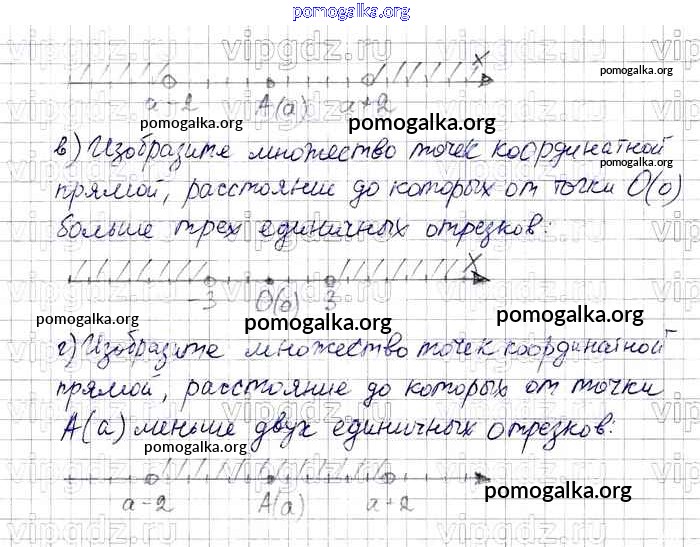 pomogalka.org
vipgdz.ru vipgdz.ru
x
pomogalka.org
a-2 A(a) a+2
pomogalka.org pomogalka.org
в) Изобразите множество точек координатной
pomogalka.org
прямой, расстояние до которых от точки O(o)
больше трех единичных отрезков:
x
-3 O(o) 3
pomogalka.org pomogalka.org pomogalka.org
г) Изобразите множество точек координатной
прямой, расстояние до которых от точки
A(a) меньше двух единичных отрезков:
pomogalka.org pomogalka.org
a-2 A(a) a+2
pomogalka.org
vipgdz.ru vipgdz.ru